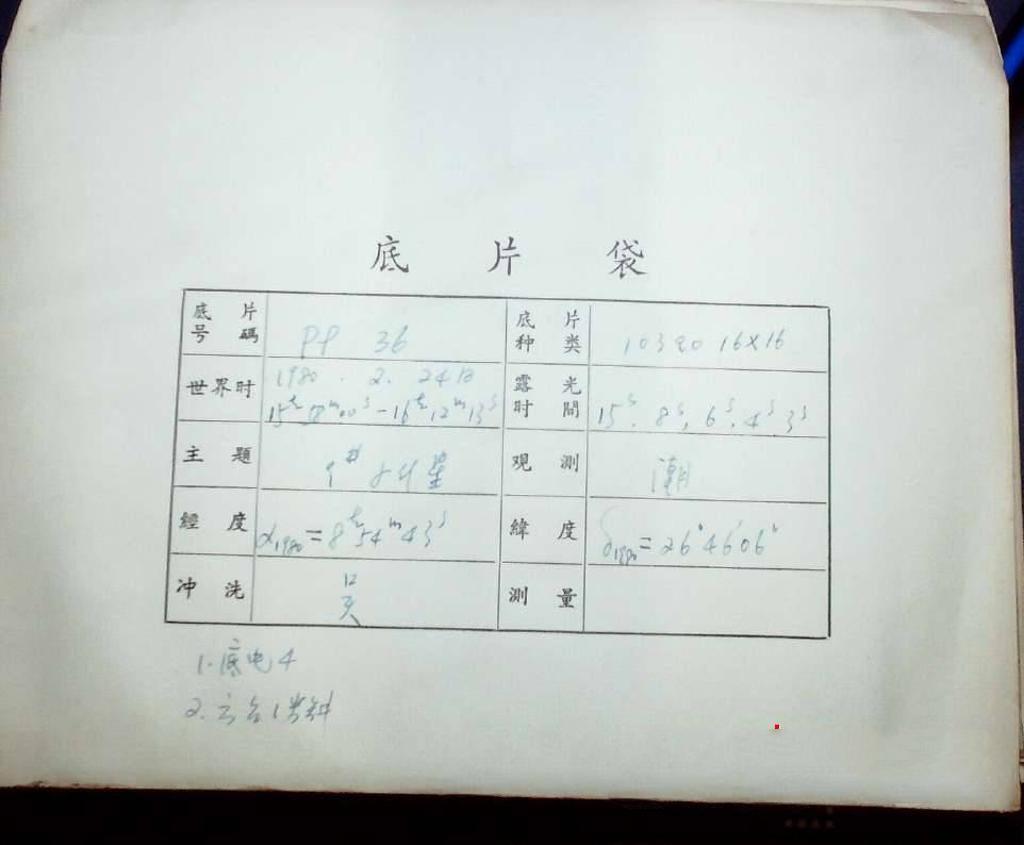 底 片 袋
底 片
号 碼
PP 36
底 片
种 类
103aO 16×16
世界时
1980.2.24日
15ʰ58ᵐ00ˢ-16ʰ12ᵐ13ˢ
露 光
时 間
15ˢ.8ˢ.6ˢ.4ˢ3ˢ
主 題
星
观 測
潮
經 度
α1980=8ʰ54ᵐ43ˢ
緯 度
δ1980=26°46′06″
冲 洗
測 量
1.底电4
2.